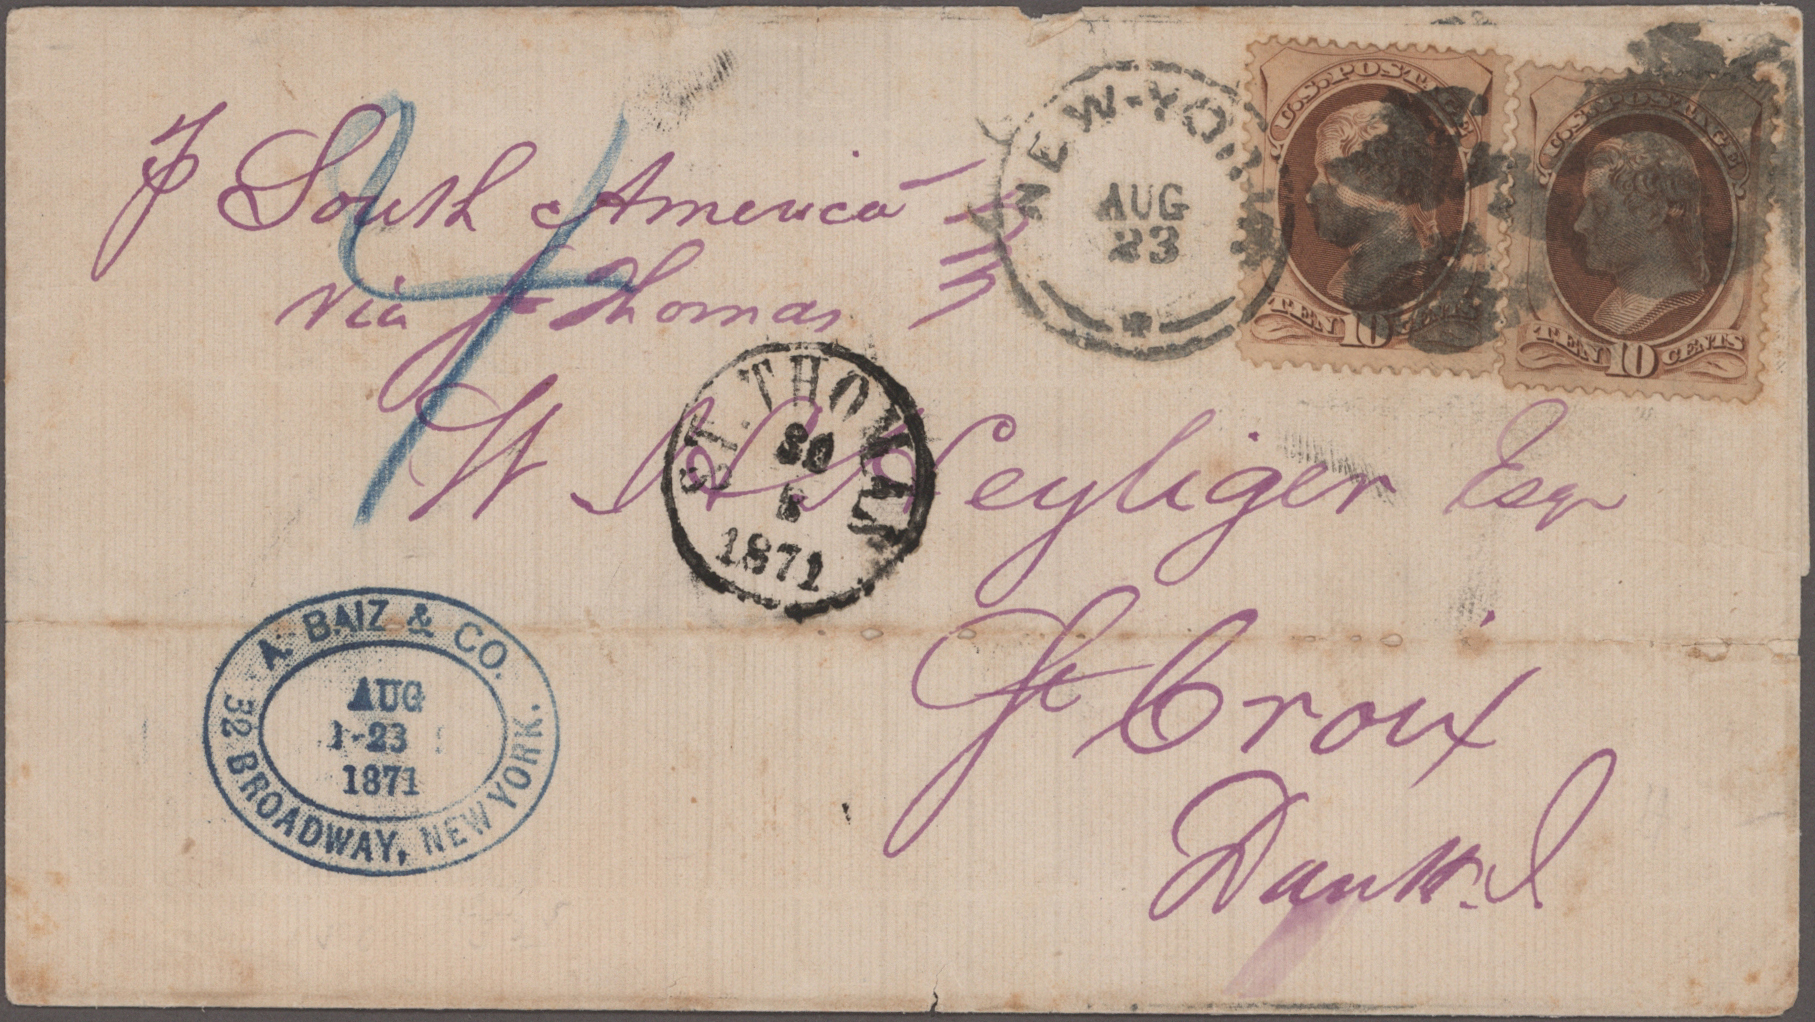 NEW-YORK
AUG
23
U.S. POSTAGE
TEN 10 CENTS
U.S. POSTAGE
TEN 10 CENTS
South America
via St Thomas
4
ST. THOMAS
30
8
1871
W H Heyliger Esqr
St Croix
A. BAIZ & CO.
AUG
1-23
1871
32 BROADWAY, NEW YORK.